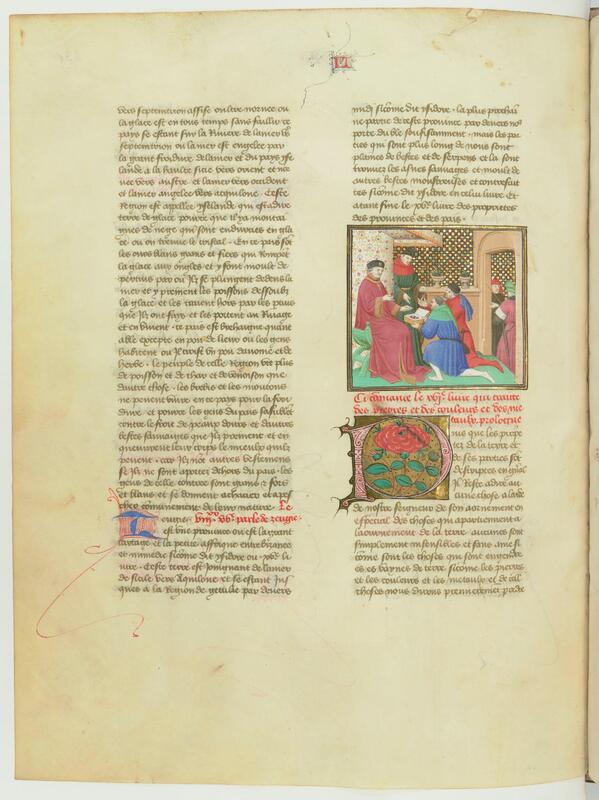 vers septentrion assise oultre norvee ou
la glace est en tous temps sans faillir ce
pays se estant sur la Riviere de la mer vs
septentrion ou la mer est engelee par
la grant froidure de la mer et du pays yse
lande a la haulte sicie vers orient et nor
vee vers austre et la mer vers occident
et la mer angelee vers aquilone Ceste
Region est apellee yselande qui est a dire
terre de glace pource que il ya montai
gnes de nege qui sont endurcies en gla
ce ou on treuve le cristal En ce pais sot
les ours blans grans et fiers qui Rompet
la glace aux ongles et y font moult de
pertuis par ou Ilz se plungent dedens la
mer et y prennent les poissons dessoubz
la glace et les tirent hors par les ptuis
que Ilz ont fays et les portent au Rivage
et en vivent ce pais est brehaigne quant
a ble excepte en pou de lieux ou les gens
habitent ou Il croist un pou davoine et de
herbe le peuple de celle Region vit plus
de poisson et de char et de venoison que
dautre chose les brebis et les moutons
ne pevent vivre en ce pays pour la froi
dure et pource les gens du pais safublet
contre le froit de peaux dours et dautres
bestes sauvaiges que Ilz prennent et en
queuvrent leur corps le mieulx quilz
pevent car Ilz not autres vestemens
se Ilz ne sont aportez dehors du pais les
gens de celle contree sont grans et fors
et blans et se donnent a chacier et a pes
chier communement de leur nature Le
viijxx xvj parle de zeugie
Zeugie
est une province ou est la grant
cartage et la petite affrique entre bizance
et numedie sicome dit ysidore ou xve li
vre Ceste terre est Joingnant de la mer
de sicile vers Aquilone et se estant Jus
ques a la Region de getulie par devers
midi sicome dit ysidore la plus prochai
ne partie de ceste province par devers nous
porte du ble souffisamment mais les par
ties qui sont plus loing de nous sont
plaines de bestes et de serpens et la sont
trouvez les asnes sauvaiges et moult de
autres bestes monstreuses et contrefai
tes sicome dit ysidore en celui livre Et
a tant fine le xve livre des proprietes
des provinces et des pais
Ci comance le xvje livre qui traite
des pierres et des couleurs et des me
taulx prologue
Puis que les propie
tez de la terre et
de ses parties sot
descriptes en gnal
Il Reste a dire au
cune chose a la loe
de nostre seigneur de son aornement en
especial des choses qui apartiennent a
laornement de la terre aucunes sont
simplement insensibles et sans ame si
come sont les choses qui sont engendre
es es vaynes de terre sicome les pierres
et les couleurs et les metaulx et de tel
choses nous dirons premierement par de